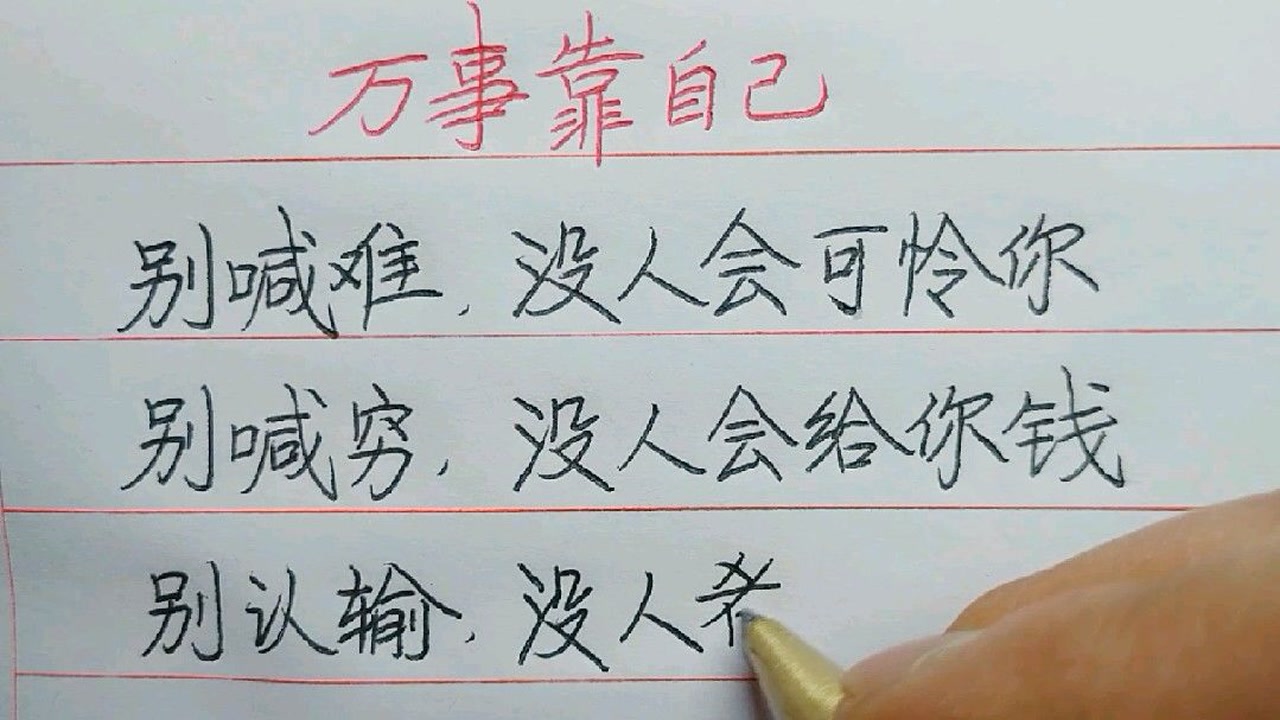 万事靠自己
别喊难,没人会可怜你
别喊穷,没人会给你钱
别认输,没人